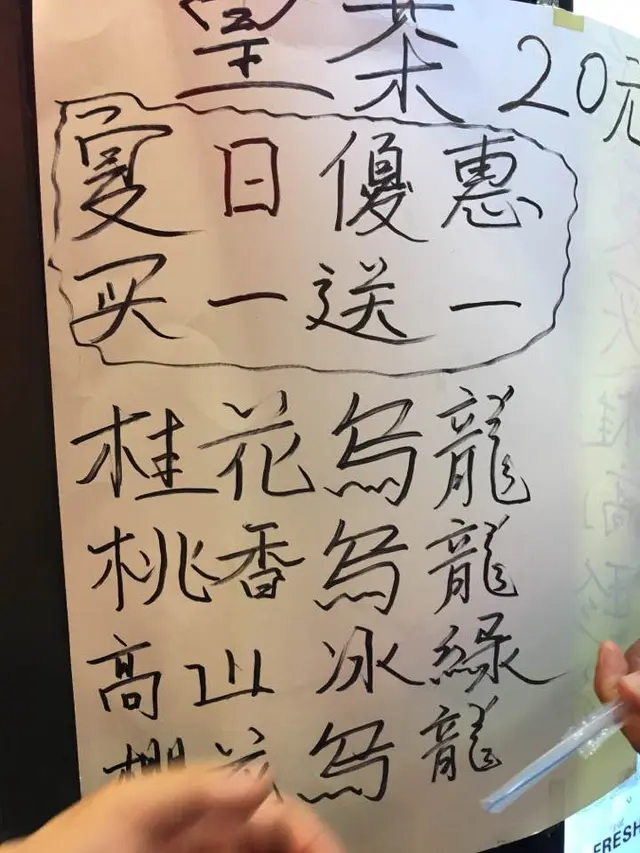 皇茶 20元
夏日優惠
买一送一
桂花烏龍
桃香烏龍
高山冰綠
櫻花烏龍
FRESH